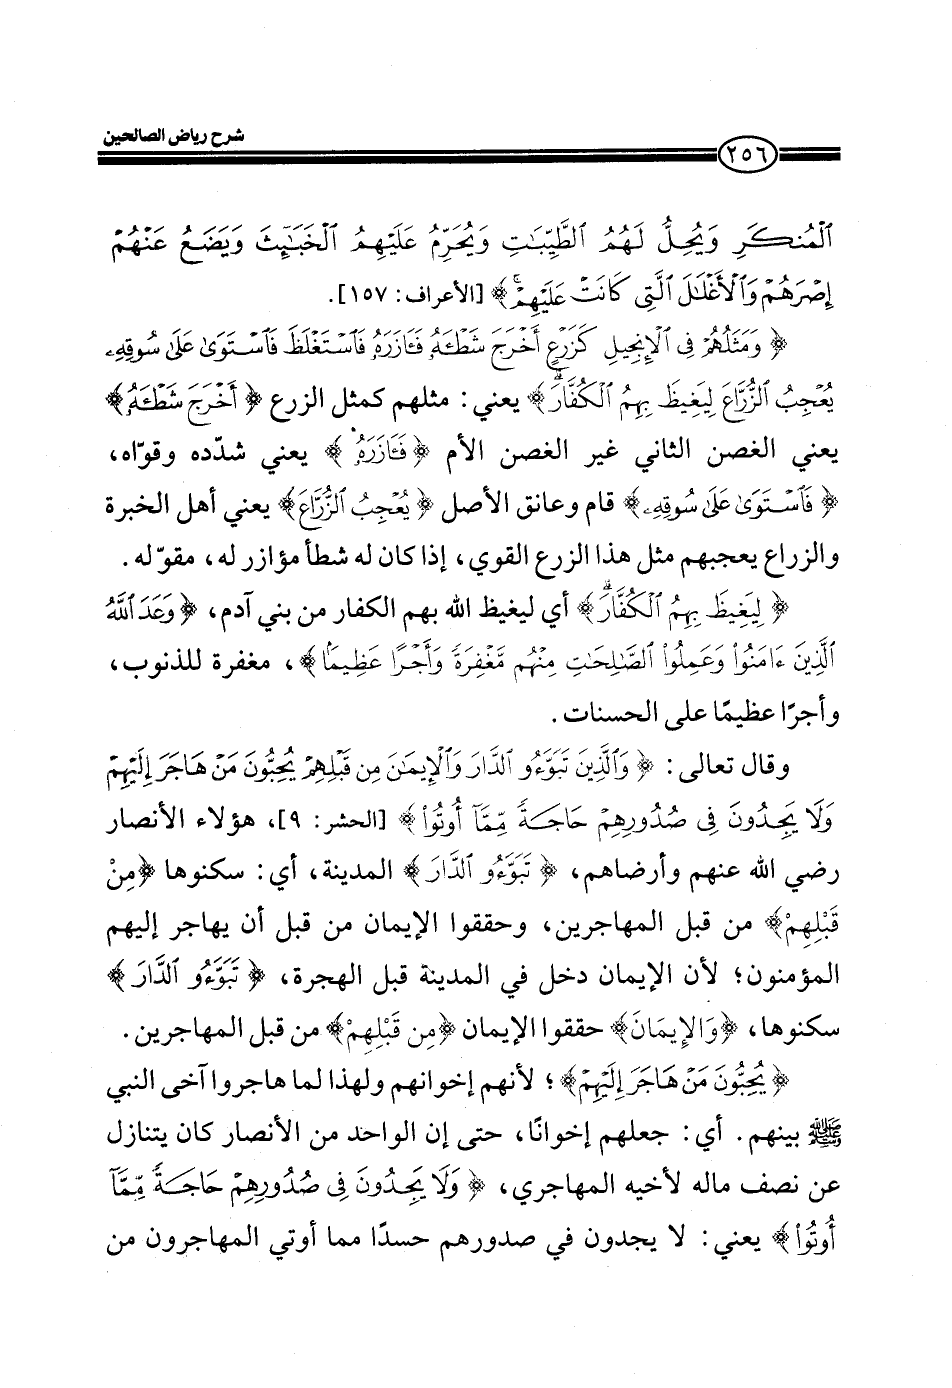 شرح رياض الصالحين
٢٥٦
ٱلْمُنكَرِ وَيُحِلُّ لَهُمُ ٱلطَّيِّبَٰتِ وَيُحَرِّمُ عَلَيْهِمُ ٱلْخَبَٰٓئِثَ وَيَضَعُ عَنْهُمْ
إِصْرَهُمْ وَٱلْأَغْلَٰلَ ٱلَّتِى كَانَتْ عَلَيْهِمْ ۚ﴾ [الأعراف: ١٥٧].
﴿ وَمَثَلُهُمْ فِى ٱلْإِنجِيلِ كَزَرْعٍ أَخْرَجَ شَطْـَٔهُۥ فَـَٔازَرَهُۥ فَٱسْتَغْلَظَ فَٱسْتَوَىٰ عَلَىٰ سُوقِهِۦ
يُعْجِبُ ٱلزُّرَّاعَ لِيَغِيظَ بِهِمُ ٱلْكُفَّارَ ۗ﴾ يعني: مثلهم كمثل الزرع ﴿ أَخْرَجَ شَطْـَٔهُۥ ﴾
يعني الغصن الثاني غير الغصن الأم ﴿ فَـَٔازَرَهُۥ ﴾ يعني شدّده وقوّاه،
﴿ فَٱسْتَوَىٰ عَلَىٰ سُوقِهِۦ ﴾ قام وعانق الأصل ﴿ يُعْجِبُ ٱلزُّرَّاعَ ﴾ يعني أهل الخبرة
والزراع يعجبهم مثل هذا الزرع القوي، إذا كان له شطأ مؤازر له، مقوّ له.
﴿ لِيَغِيظَ بِهِمُ ٱلْكُفَّارَ ۗ﴾ أي ليغيظ الله بهم الكفار من بني آدم، ﴿ وَعَدَ ٱللَّهُ
ٱلَّذِينَ ءَامَنُوا۟ وَعَمِلُوا۟ ٱلصَّٰلِحَٰتِ مِنْهُم مَّغْفِرَةً وَأَجْرًا عَظِيمًۢا ﴾، مغفرة للذنوب،
وأجرًا عظيمًا على الحسنات.
وقال تعالى: ﴿ وَٱلَّذِينَ تَبَوَّءُو ٱلدَّارَ وَٱلْإِيمَٰنَ مِن قَبْلِهِمْ يُحِبُّونَ مَنْ هَاجَرَ إِلَيْهِمْ
وَلَا يَجِدُونَ فِى صُدُورِهِمْ حَاجَةً مِّمَّآ أُوتُوا۟ ﴾ [الحشر: ٩]، هؤلاء الأنصار
رضي الله عنهم وأرضاهم، ﴿ تَبَوَّءُو ٱلدَّارَ ﴾ المدينة، أي: سكنوها ﴿مِنْ
قَبْلِهِمْ﴾ من قبل المهاجرين، وحققوا الإيمان من قبل أن يهاجر إليهم
المؤمنون؛ لأن الإيمان دخل في المدينة قبل الهجرة، ﴿ تَبَوَّءُو ٱلدَّارَ ﴾
سكنوها، ﴿وَالإِيمَانَ﴾ حققوا الإيمان ﴿مِن قَبْلِهِمْ﴾ من قبل المهاجرين.
﴿ يُحِبُّونَ مَنْ هَاجَرَ إِلَيْهِمْ ﴾؛ لأنهم إخوانهم ولهذا لما هاجروا آخى النبي
ﷺ بينهم. أي: جعلهم إخوانًا، حتى إن الواحد من الأنصار كان يتنازل
عن نصف ماله لأخيه المهاجري، ﴿ وَلَا يَجِدُونَ فِى صُدُورِهِمْ حَاجَةً مِّمَّآ
أُوتُوا۟ ﴾ يعني: لا يجدون في صدورهم حسدًا مما أوتي المهاجرون من